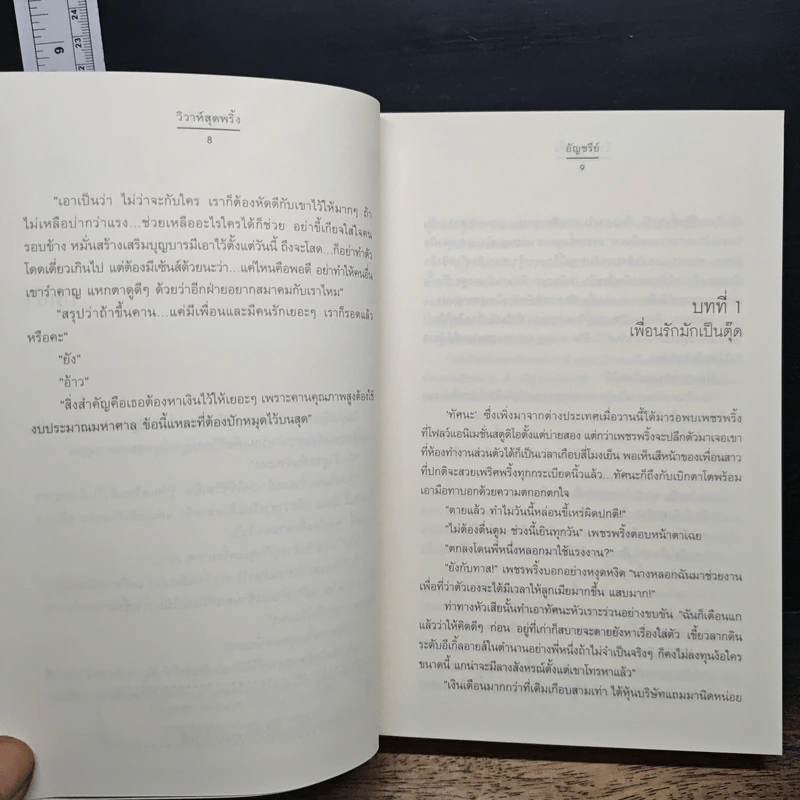 วิวาห์สุดพริ้ง
8
"เอาเป็นว่า ไม่ว่าจะกับใคร เราก็ต้องหัดดีกับเขาไว้ให้มากๆ ถ้า
ไม่เหลือบ่ากว่าแรง...ช่วยเหลืออะไรใครได้ก็ช่วย อย่าขี้เกียจใส่ใจคน
รอบข้าง หมั่นสร้างเสริมบุญบารมีเอาไว้ตั้งแต่วันนี้ ถึงจะโสด...ก็อย่าทำตัว
โดดเดี่ยวเกินไป แต่ต้องมีเซ้นส์ด้วยนะว่า...แค่ไหนคือพอดี อย่าทำให้คนอื่น
เขารำคาญ แหกตาดูดีๆ ด้วยว่าอีกฝ่ายอยากสมาคมกับเราไหม"
"สรุปว่าถ้าขึ้นคาน...แค่มีเพื่อนและมีคนรักเยอะๆ เราก็รอดแล้ว
หรือคะ"
"ยัง"
"อ้าว"
"สิ่งสำคัญคือเธอต้องหาเงินไว้ให้เยอะๆ เพราะคานคุณภาพสูงต้องใช้
งบประมาณมหาศาล ข้อนี้แหละที่ต้องปักหมุดไว้บนสุด"
อัญชรีย์
๙
บทที่ 1
เพื่อนรักมักเป็นตุ๊ด
'ทัศนะ' ซึ่งเพิ่งมาจากต่างประเทศเมื่อวานนี้ได้มารอพบเพชรพริ้ง
ที่โฟลว์แอนิเมชั่นสตูดิโอตั้งแต่บ่ายสอง แต่กว่าเพชรพริ้งจะปลีกตัวมาเจอเขา
ที่ห้องทำงานส่วนตัวได้ก็เป็นเวลาเกือบสี่โมงเย็น พอเห็นสีหน้าของเพื่อนสาว
ที่ปกติจะสวยเพริศพริ้งทุกกระเบียดนิ้วแล้ว...ทัศนะก็ถึงกับเบิกตาโตพร้อม
เอามือทาบอกด้วยความตกอกตกใจ
"ตายแล้ว ทำไมวันนี้หล่อนขี้เหร่ผิดปกติ!"
"ไม่ต้องตื่นตูม ช่วงนี้เยินทุกวัน" เพชรพริ้งตอบหน้าตาเฉย
"ตกลงโดนพี่หนึ่งหลอกมาใช้แรงงาน?"
"ยังกับทาส!" เพชรพริ้งบอกอย่างหงุดหงิด "นางหลอกฉันมาช่วยงาน
เพื่อที่ว่าตัวเองจะได้มีเวลาให้ลูกเมียมากขึ้น แสบมาก!"
ท่าทางหัวเสียนั้นทำเอาทัศนะหัวเราะร่วนอย่างขบขัน "ฉันก็เตือนแก
แล้วว่าให้คิดดีๆ ก่อน อยู่ที่เก่าก็สบายจะตายยังหาเรื่องใส่ตัว เขี้ยวลากดิน
ระดับอีเกิ้ลอายส์ในตำนานอย่างพี่หนึ่งถ้าไม่จำเป็นจริงๆ ก็คงไม่ลงทุนง้อใคร
ขนาดนี้ แกน่าจะมีลางสังหรณ์ตั้งแต่เขาโทรหาแล้ว"
"เงินเดือนมากกว่าที่เดิมเกือบสามเท่า ได้หุ้นบริษัทแถมมานิดหน่อย